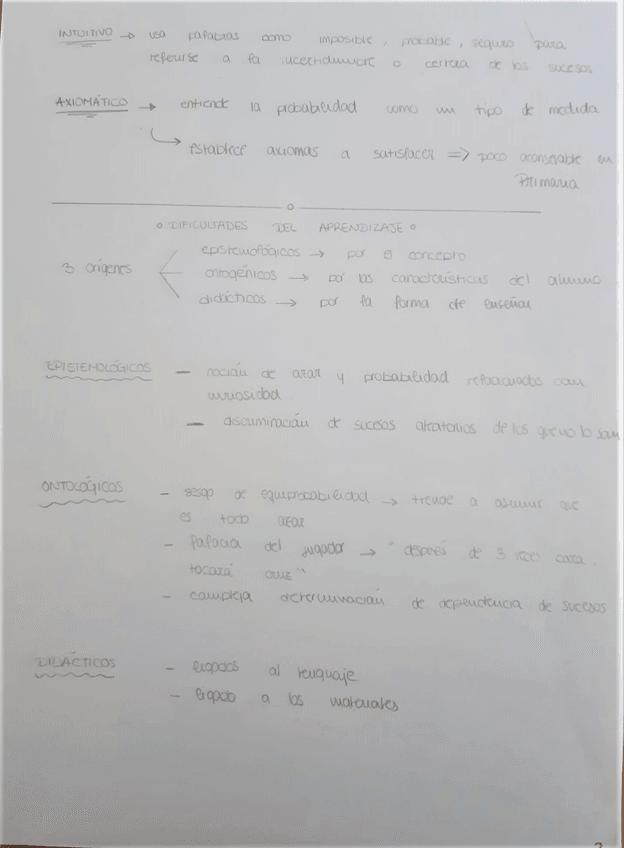 INTUITIVO → usa palabras como imposible, probable, seguro para
referirse a la incertidumbre o certeza de los sucesos
AXIOMÁTICO → entiende la probabilidad como un tipo de medida
↳ establece axiomas a satisfacer => poco aconsejable en
Primaria
° DIFICULTADES DEL APRENDIZAJE °
3 orígenes
epistemológicos → por el concepto
ontogénicos → por las características del alumno
didácticos → por la forma de enseñar
EPISTEMOLÓGICOS — noción de azar y probabilidad relacionados con
curiosidad
— discriminación de sucesos aleatorios de los que no lo son
ONTOLÓGICOS - sesgo de equiprobabilidad → tiende a asumir que
es todo azar
- falacia del jugador → "después de 3 veces cara,
tocará cruz"
- compleja determinación de dependencia de sucesos
DIDÁCTICOS - ligados al lenguaje
- ligado a los materiales